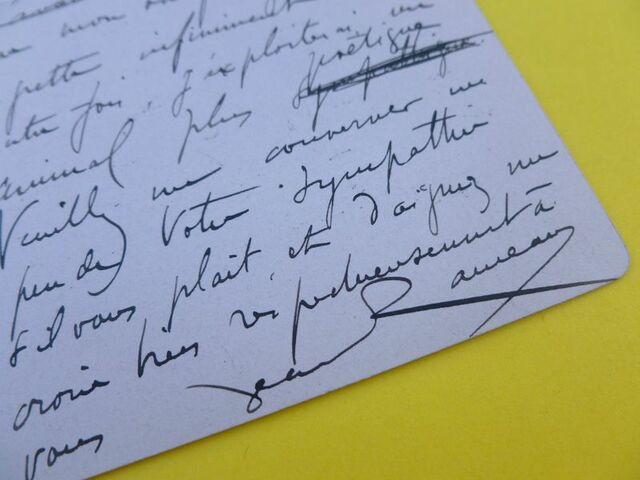 mon
regrette infiniment
autre fois, j'exploiterai un
animal plus poétique
Veuillez me conserver un
peu de votre sympathie
s'il vous plait, et daignez me
croire très respectueusement à
vous
Jean Rameau